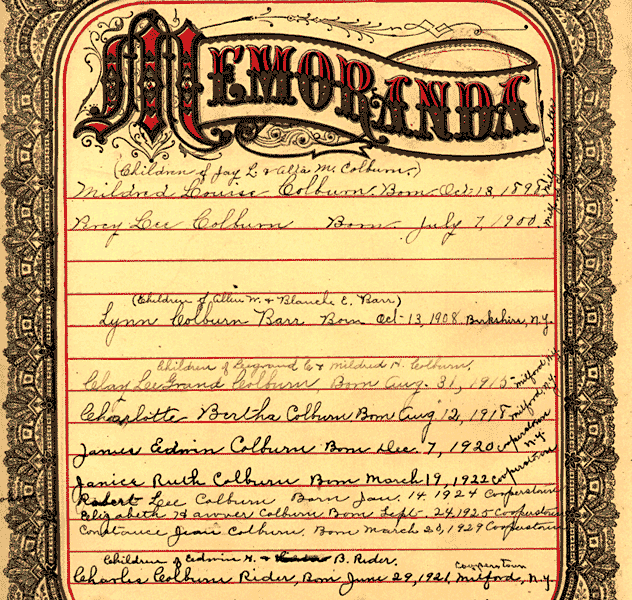 MEMORANDA
(Children of Jay L. & Alta M. Colburn.)
Mildred Louise Colburn. Born Oct. 18, 1898
Percy Lee Colburn Born. July 7, 1900
(Children of Allie W. & Blanche E. Barr)
Lynn Colburn Barr Born Oct. 13, 1908. Berkshire, N.Y.
Children of Legrand C & Mildred H. Colburn.
Clay LeGrand Colburn, Born Aug. 31, 1915- Milford, N.Y.
Charlotte Bertha Colburn Born Aug 12, 1918 Milford N.Y.
James Edwin Colburn Born Dec. 7, 1920 Cooperstown N.Y.
Janice Ruth Colburn Born March 19, 1922 Cooperstown
Robert Lee Colburn Born Jan. 14 1924 Cooperstown
Elizabeth Colburn Born Sept. 24 1925 Cooperstown
Constance Jean Colburn. Born March 20, 1929 Cooperstown
Children of Edwin H. & B. Rider.
Cooperstown
Charles Colburn Rider, Born June 29, 1921, Milford, N.Y.